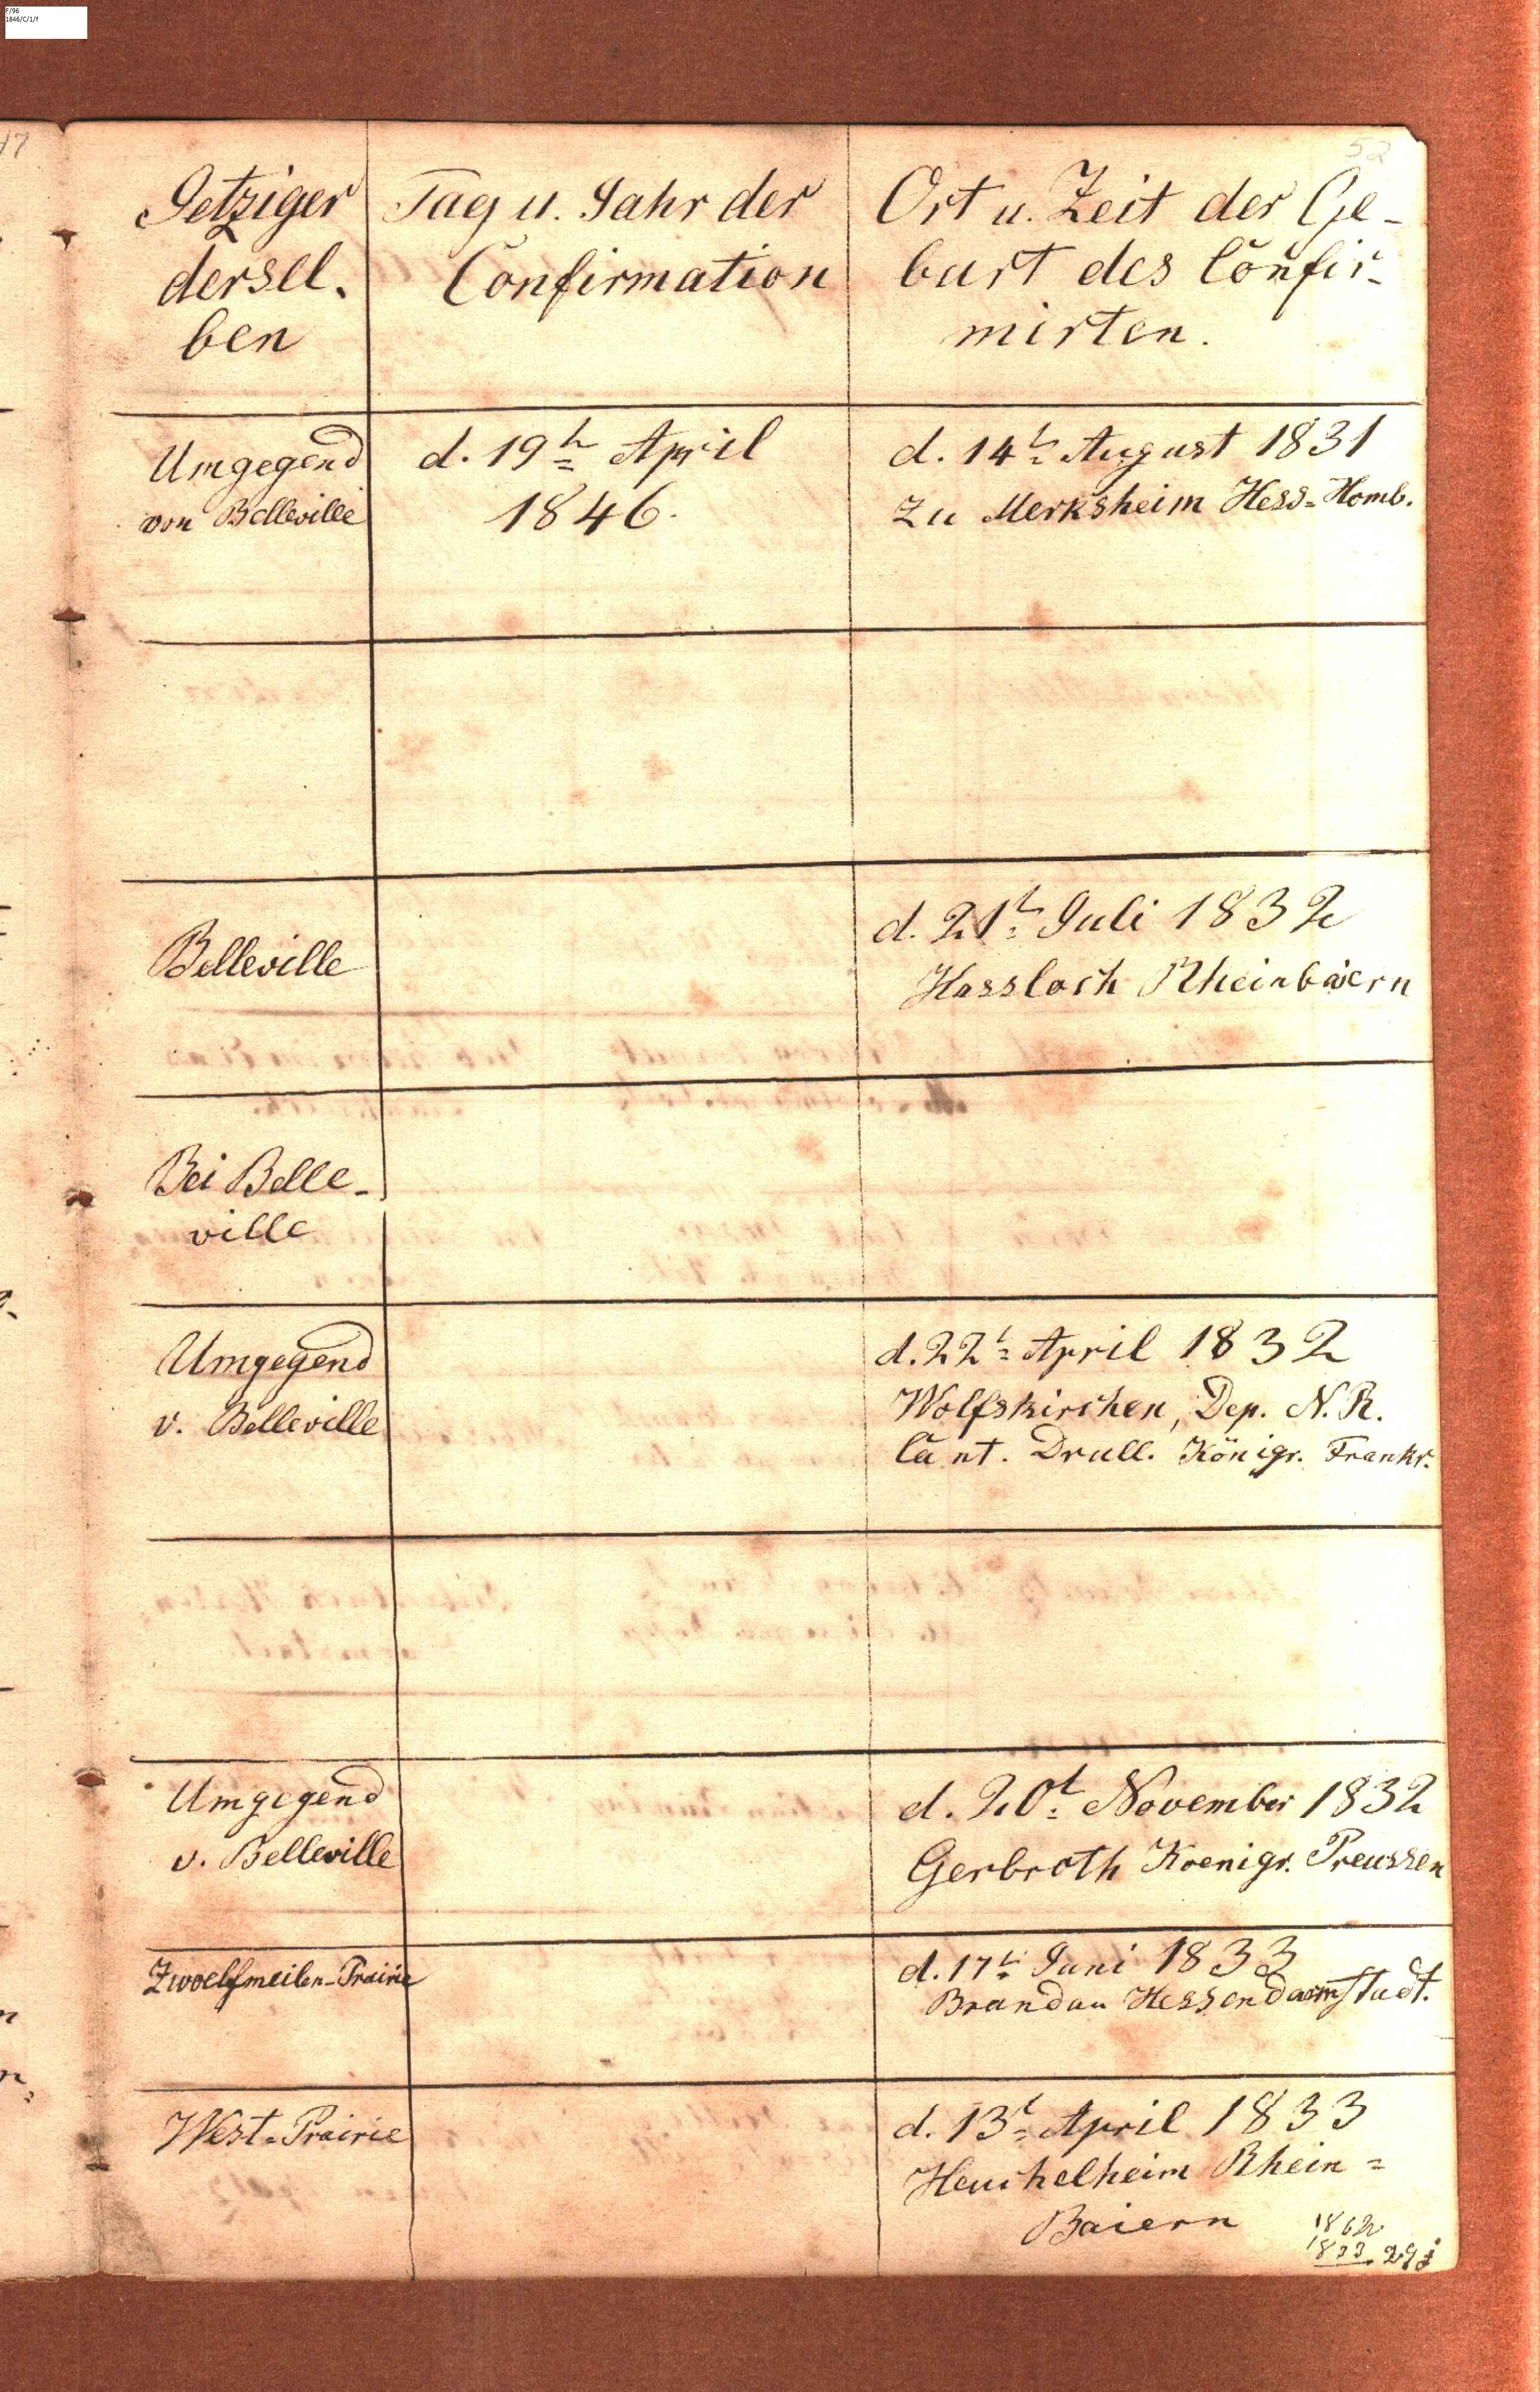 F/96
1846/C/1/f
17
52
Jetziger
dersel.
ben
Tag u. Jahr der
Confirmation
Ort u. Zeit der Ge-
burt des Confir-
mirten.
Umgegend
von Belleville
d. 19t April
1846.
d. 14t August 1831
zu Merksheim Hess-Homb.
Belleville
d. 21t Juli 1832
Hassloch Rheinbaiern
Bei Belle-
ville
Umgegend
v. Belleville
d. 22t April 1832
Wolfskirchen, Dep. N. R.
Cant. Drull. Königr. Frankr.
Umgegend
v. Belleville
d. 20t November 1832
Gerbroth Koenigr. Preussen
Zwoelfmeilen-Prairie
d. 17t Juni 1833
Brandau Hessendarmstadt.
West-Prairie
d. 13t April 1833
Heuchelheim Rhein=
Baiern
1862
1833. 29j